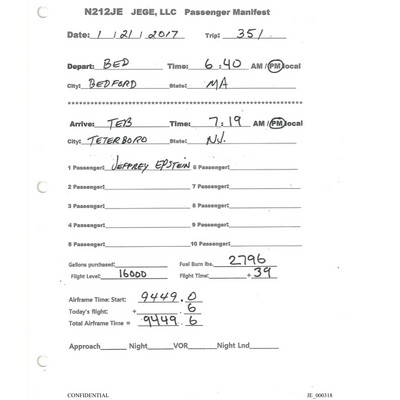 N212JE JEGE, LLC Passenger Manifest
Date: 1 / 21 / 2017 Trip: 351
Depart: BED Time: 6:40 AM / PM local
City: BEDFORD State: MA
************************************************************
Arrive: TEB Time: 7:19 AM / PM local
City: TETERBORO State: NJ.
1 Passenger: JEFFREY EPSTEIN 6 Passenger:
2 Passenger: 7 Passenger:
3 Passenger: 8 Passenger:
4 Passenger: 9 Passenger:
5 Passenger: 10 Passenger:
Gallons purchased: Fuel Burn lbs. 2796
Flight Level: 16000 Flight Time: +39
Airframe Time: Start: 9449.0
Today's flight: + .6
Total Airframe Time = 9449.6
Approach Night: VOR Night Lnd
CONFIDENTIAL JE_000318